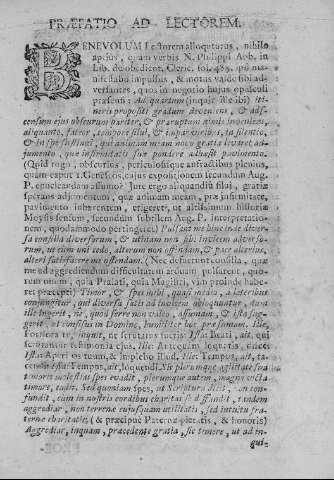 PRÆFATIO AD LECTOREM.
BENEVOLUM Lectorem alloquturus, nihilo
aptius, quam verbis N. Philippi Abb. in
Lib. de obedient. Cleric.
versantes, quos in negotio hujus opusculi
præsensi: Ad quartum (inquit ille ibi) iti-
neris propositi gradum deveniens, & ad
censum ejus obscurum pariter, & præruptum
aliquanto, fateor, tempore silui, & impar viribus, ta silentio,
& in spe sustinui, qui animam meam novo gratia levaret ad-
jumento, quæ infirmitatis suæ pondere adhæsit pavimento.
(Quid rogo, obscurius, periculosisque anfractibus plenius,
quam caput 1. Geneseos, cujus expositionem secundum Aug.
P. enucleandam assumo? Jure ergo aliquandiu silui, gratiæ
sperans adjumentum, quæ animam meam, præ infirmitate,
pavimento inhærentem, erigeret, ut altissimum
Moysis sensum, secundum subtilem Aug. P. interpretatio-
nem, quodammodo pertingerer.) Pulsant me hinc inde diver-
sa consilia diversorum, & utinam non sibi invicem adversa-
rum, ut cum uni cedo, alterum non offendam, & pace alterius,
alteri satisfacere me ostendam. (Nec defuerunt consilia, quæ
me ad aggrediendum difficultatem arduam pulsarent, quo-
rum unum, quia Prælati, quia Magistri, vim proinde habe-
ret præcepti) Timor, & spes mihi, quasi media, a lateribus
conjungitur, qui diversa satis ad invicem
ille ingerit, ne, quod ferre non valeo, assumam, & ista sugge-
rit, ut consisus in Domino, humiliter hoc præsumam. Ille,
fortiora te, inquit, ne scrutatus fueris: Ista: Beati, ait, qui
scrutantur testimonia ejus. Ille: Parietem
Ista: Aperi os tuum, & implebo illud. Ille: Tempus, ait, ta-
cendi: Ista: Tempus, ait, loquendi. Sic plerumque
timoris molestiæ spes evadit, plerumque autem, magna victa
timore, cadit. Sed quoniam spes, ut Scriptura dicit, non con-
fundit, cum in nostris cordibus charitas se diffundit, tandem
aggrediar, non terrenæ cujusquam utilitatis, sed intuitu fra-
ternæ charitatis, (& præcipuè Paternæ pietatis, & honoris)
Aggrediar, inquam, præcedente gratia, sic timore, ut ad in-
qui-